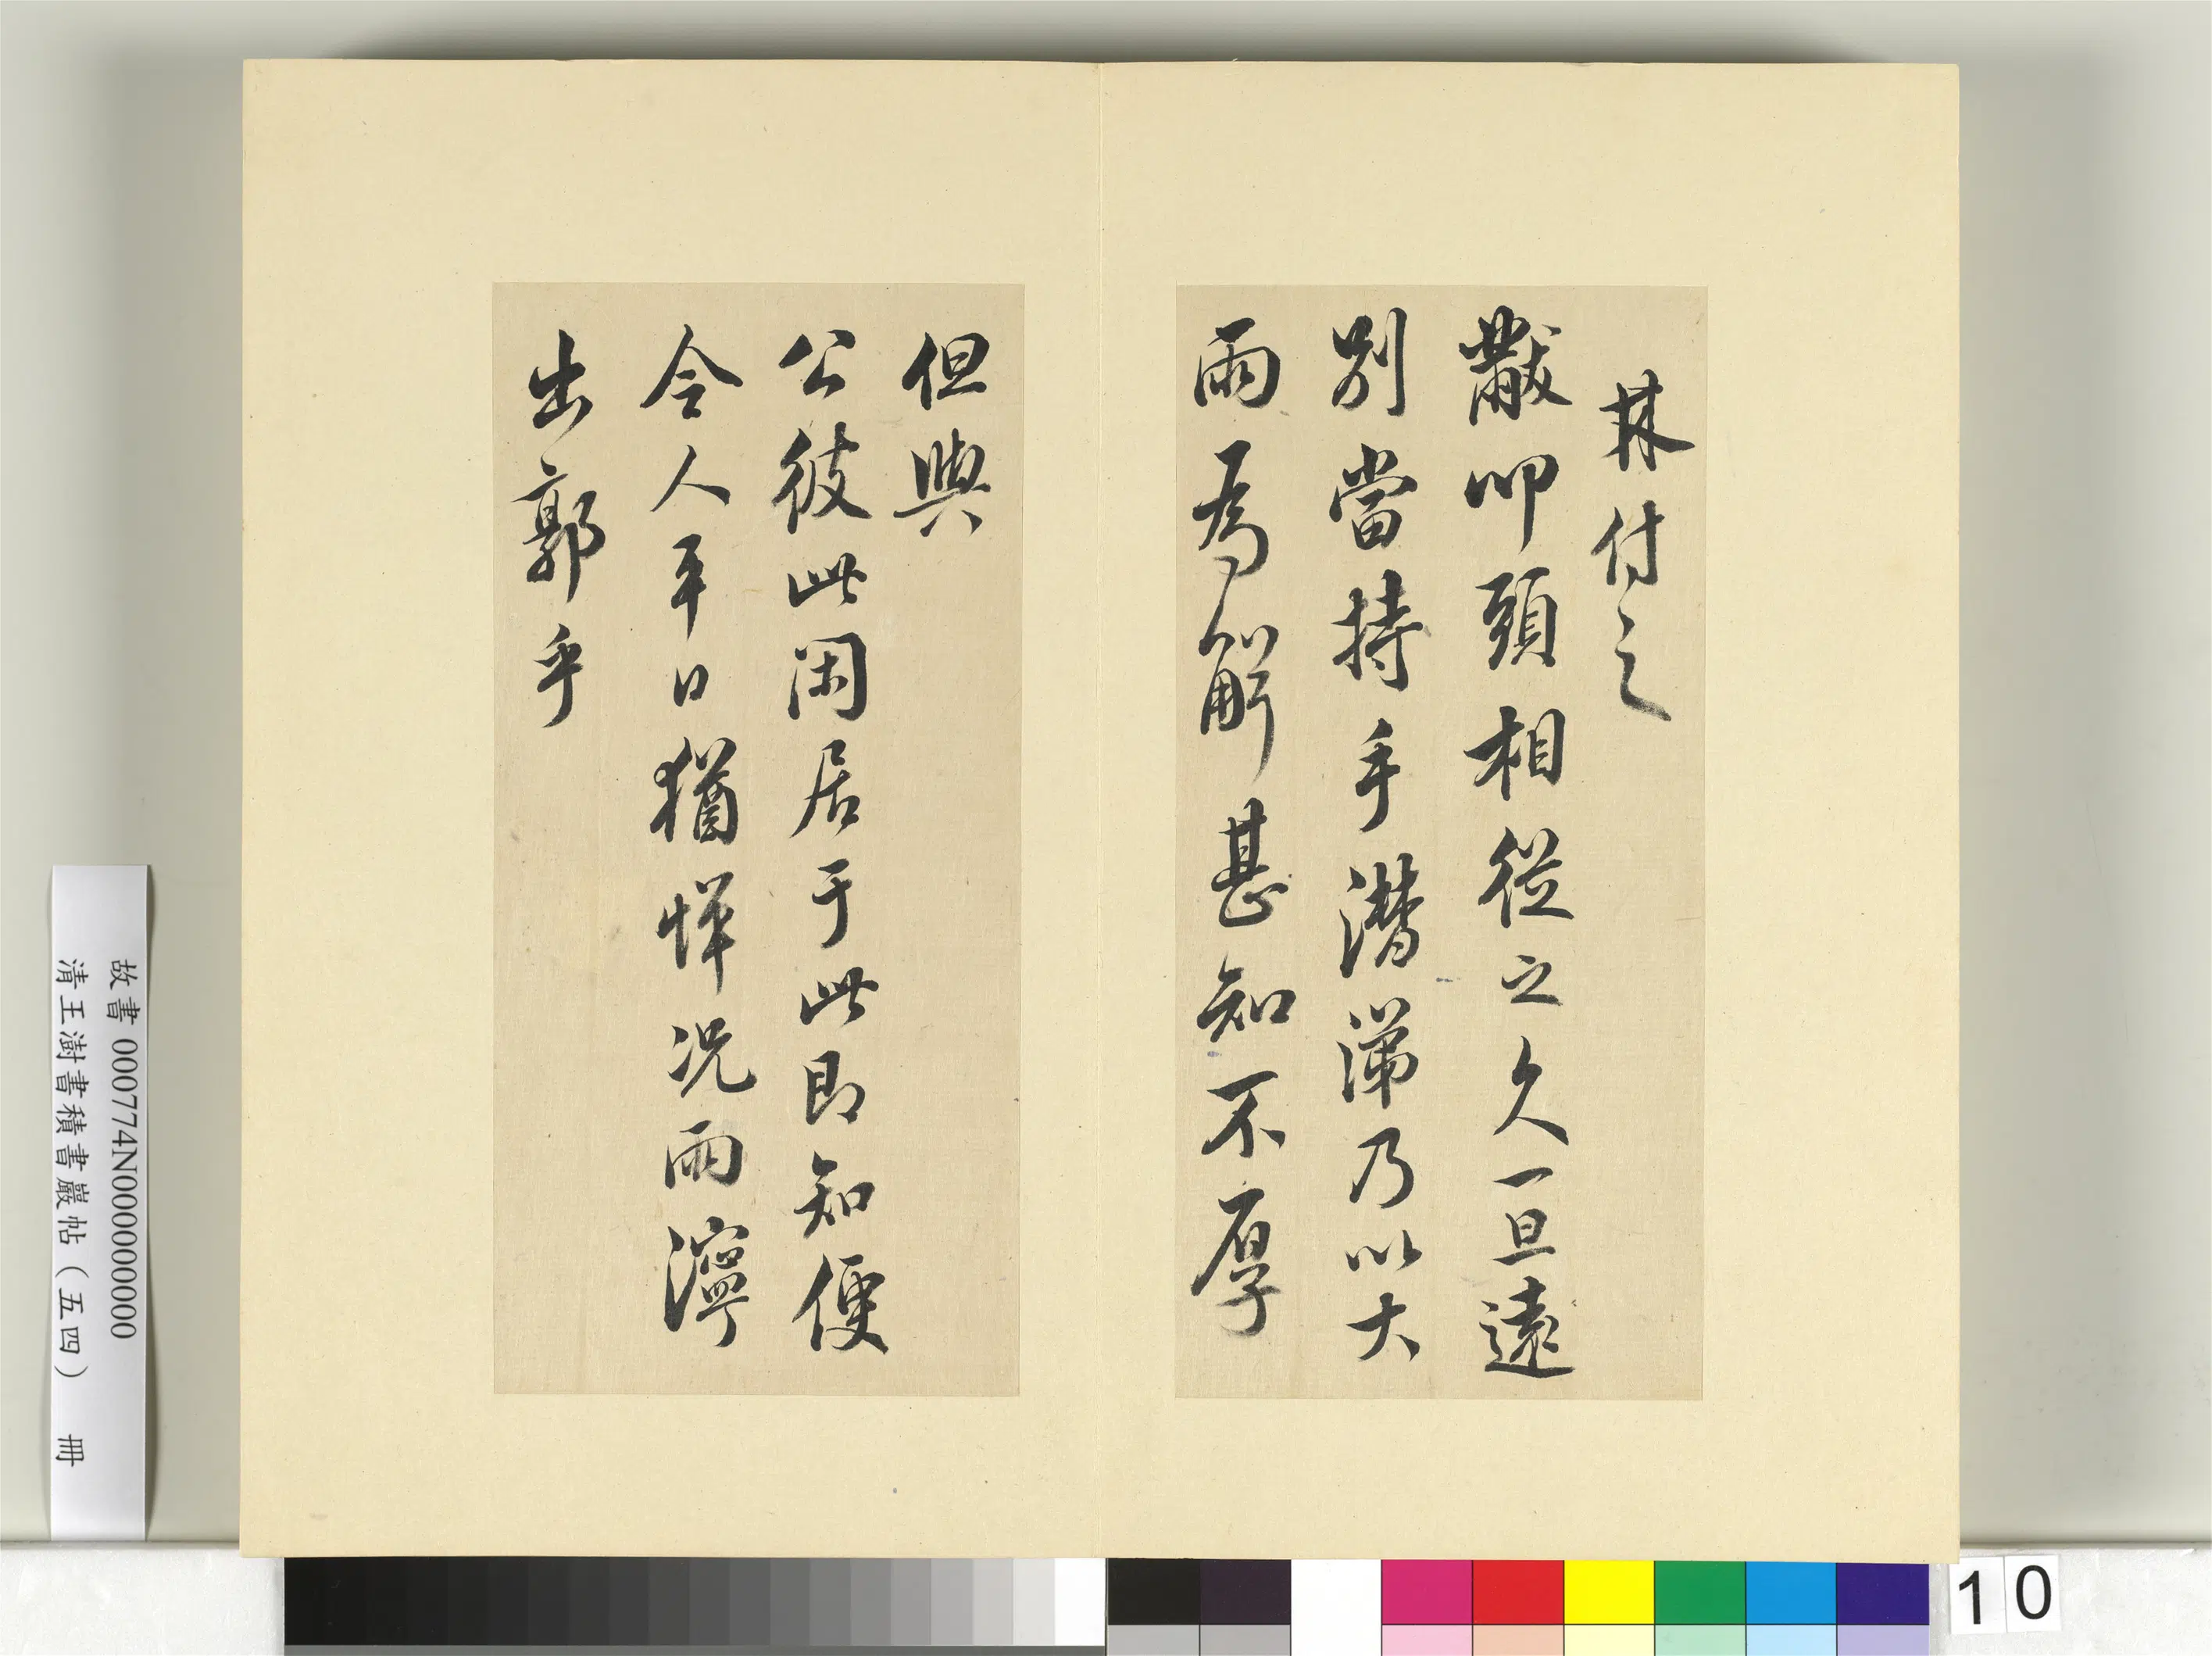 林付之
黻叩頭相從之久一旦遠
別當持手潸涕乃以大
雨為解甚知不厚
但與
公彼此閑居于此即知便
令人平日猶惮况雨濘
出郭乎
故書 000774N000000000
清王澍書積書巖帖(五四) 冊
10